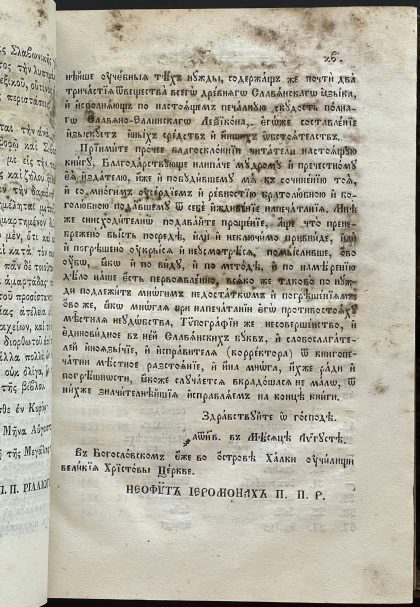 ѕ Славѡнικῆς
κв.
нѣйше оучебныѧ тѣхъ нужды, содержащъ же почти два
тричастїѧ ѿ вещества всегѡ древнѧгѡ Славѧнскагѡ ѧзыка,
и исполнѧющъ по настоѧщемъ печалную скудость полна-
гѡ Славѧно-Еллинскагѡ Леѯїкона, егѡже составленїе
изыскуетъ иныхъ средствъ и иншихъ ѡбстоѧтелствъ.
Прїимите прочее благосклоннїи читатели настоѧщую
книгу, Благодарствующе наипаче мудрому и пречестному
еѧ издателю, иже и побудившему мѧ къ сочиненїю тоѧ,
и со многимъ оусердїемъ и ревностїю братолюбною и бо-
голюбною подавшему ѿ себе иждивенїе напечатанїѧ. Мнѣ
же снисходителнѡ подавайте прощенїе, аще что прене-
брежено бысть посредѣ, или и неключимо привниде, или
и погрѣшено оукрысѧ и неусмотрѣсѧ, помысливше, ово
оубѡ, ѩкѡ и по виду, и по методѣ, и по намѣренїю
дѣло наше есть первоѧвленно, всѧко же таково по нуж-
ди подлежитъ мнѡгимъ недостаткѡмъ и погрѣшенїѧмъ·
ово же, ѩкѡ многаѧ при напечатанїи егѡ противостоѧху
мѣстнаѧ неудобства, Тѵпографїи же несовершенство, и
единовидное въ ней Славѧнскихъ Буквъ, и слобослагате-
лей иноѧзычїе, и исправителѧ (корректора) ѿ книгопе-
чатни мѣстное разстоѧнїе, и ина многа, ихже ради и
погрѣшности, ѩкоже случаетсѧ вкрадошасѧ не малѡ, ѿ
нихже значителнѣйшїѧ исправлѧемъ на концѣ книги.
Здравствуйте ѡ господѣ.
҂аѡнв. въ Мѣсѧцѣ Аѵгустѣ.
Въ Богословскомъ еже во островѣ Халки оучилищи
великїѧ Христовы Церкве.
НЕОФѴТЪ ІЕРОМОНАХЪ П. П. Р.